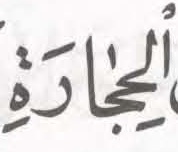 الْحِجٰارَةِ